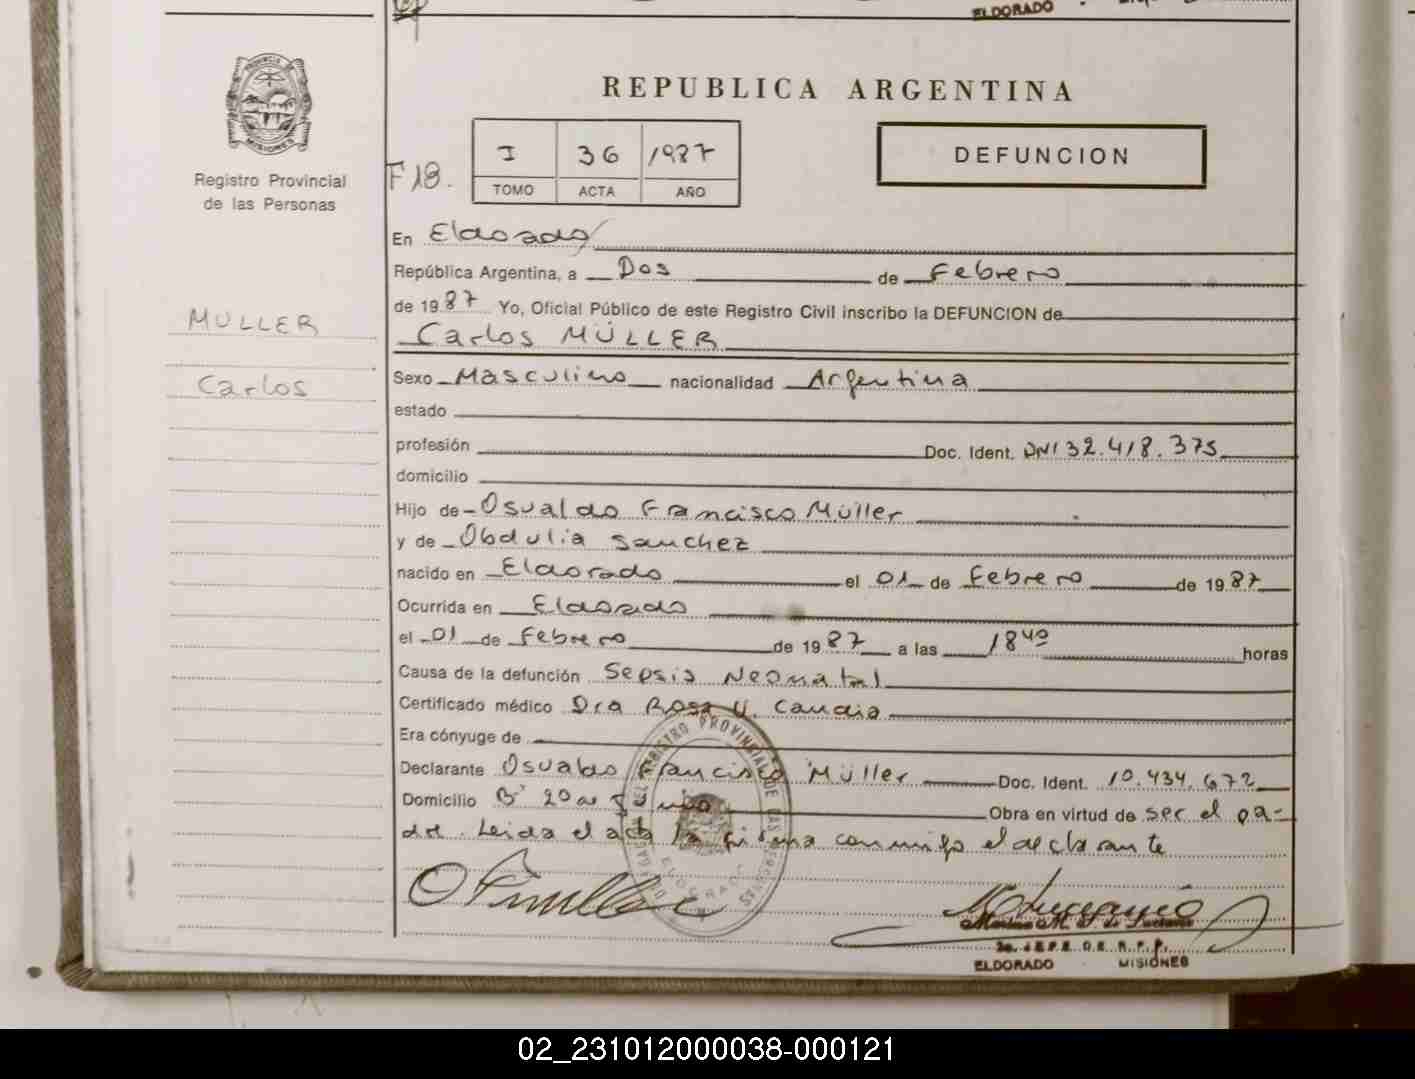 ELDORADO
PROVINCIA DE
MISIONES
Registro Provincial
de las Personas
MULLER
Carlos
REPUBLICA ARGENTINA
F 18.
I 36 1987
TOMO ACTA AÑO
DEFUNCION
En Eldorado
República Argentina, a Dos de Febrero
de 1987 Yo, Oficial Público de este Registro Civil inscribo la DEFUNCION de
Carlos MÜLLER
Sexo Masculino nacionalidad Argentina
estado
profesión Doc. Ident. DNI 32.418.375
domicilio
Hijo de Osvaldo Francisco Müller
y de Obdulia Sanchez
nacido en Eldorado el 01 de Febrero de 1987
Ocurrida en Eldorado
el 01 de Febrero de 1987 a las 18 40 horas
Causa de la defunción Sepsis Neonatal
Certificado médico Dra Rosa V. Candia
Era cónyuge de
Declarante Osvaldo Francisco Müller Doc. Ident. 10.434.672
Domicilio B° 20 de Junio Obra en virtud de ser el pa-
dre. Leida el acta la firma conmigo el declarante
DELEGACION DEL REGISTRO PROVINCIAL DE LAS PERSONAS
ELDORADO
2a. JEFE DE R.P.P.
ELDORADO MISIONES
02_231012000038-000121